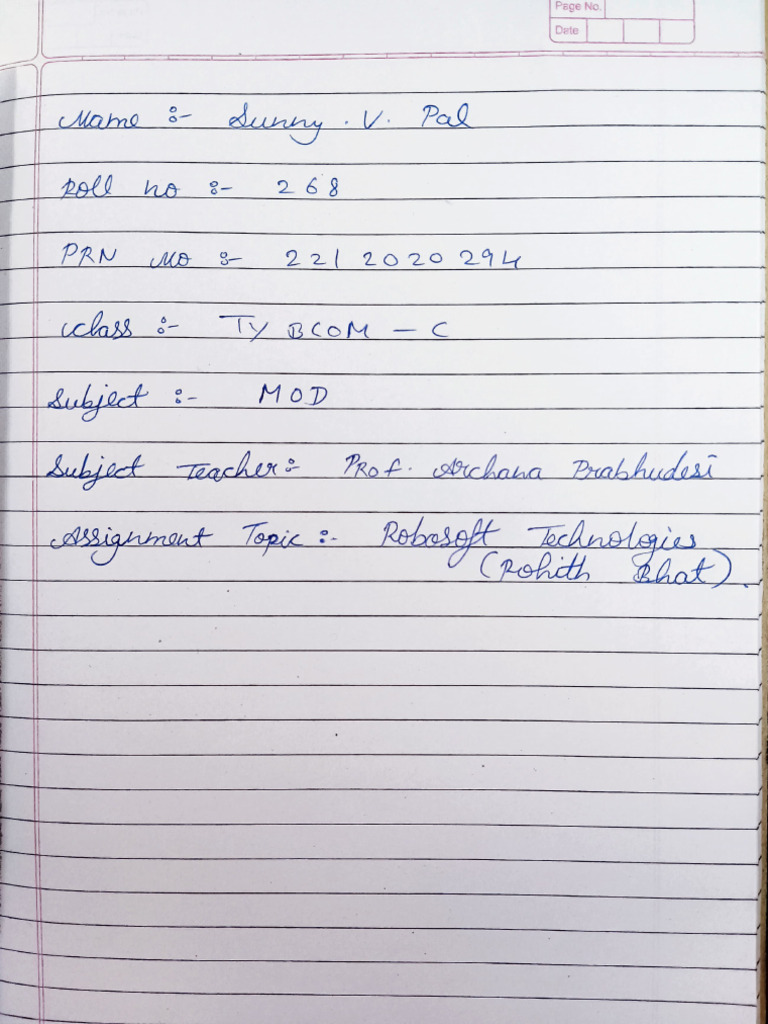 Page No.
Date
Name :- Sunny . V. Pal
Roll no :- 268
PRN No :- 2212020294
Class :- TY BCOM - C
Subject :- MOD
Subject Teacher :- Prof. Archana Prabhudesi
Assignment Topic :- Robosoft Technologies
(Rohith Bhat).